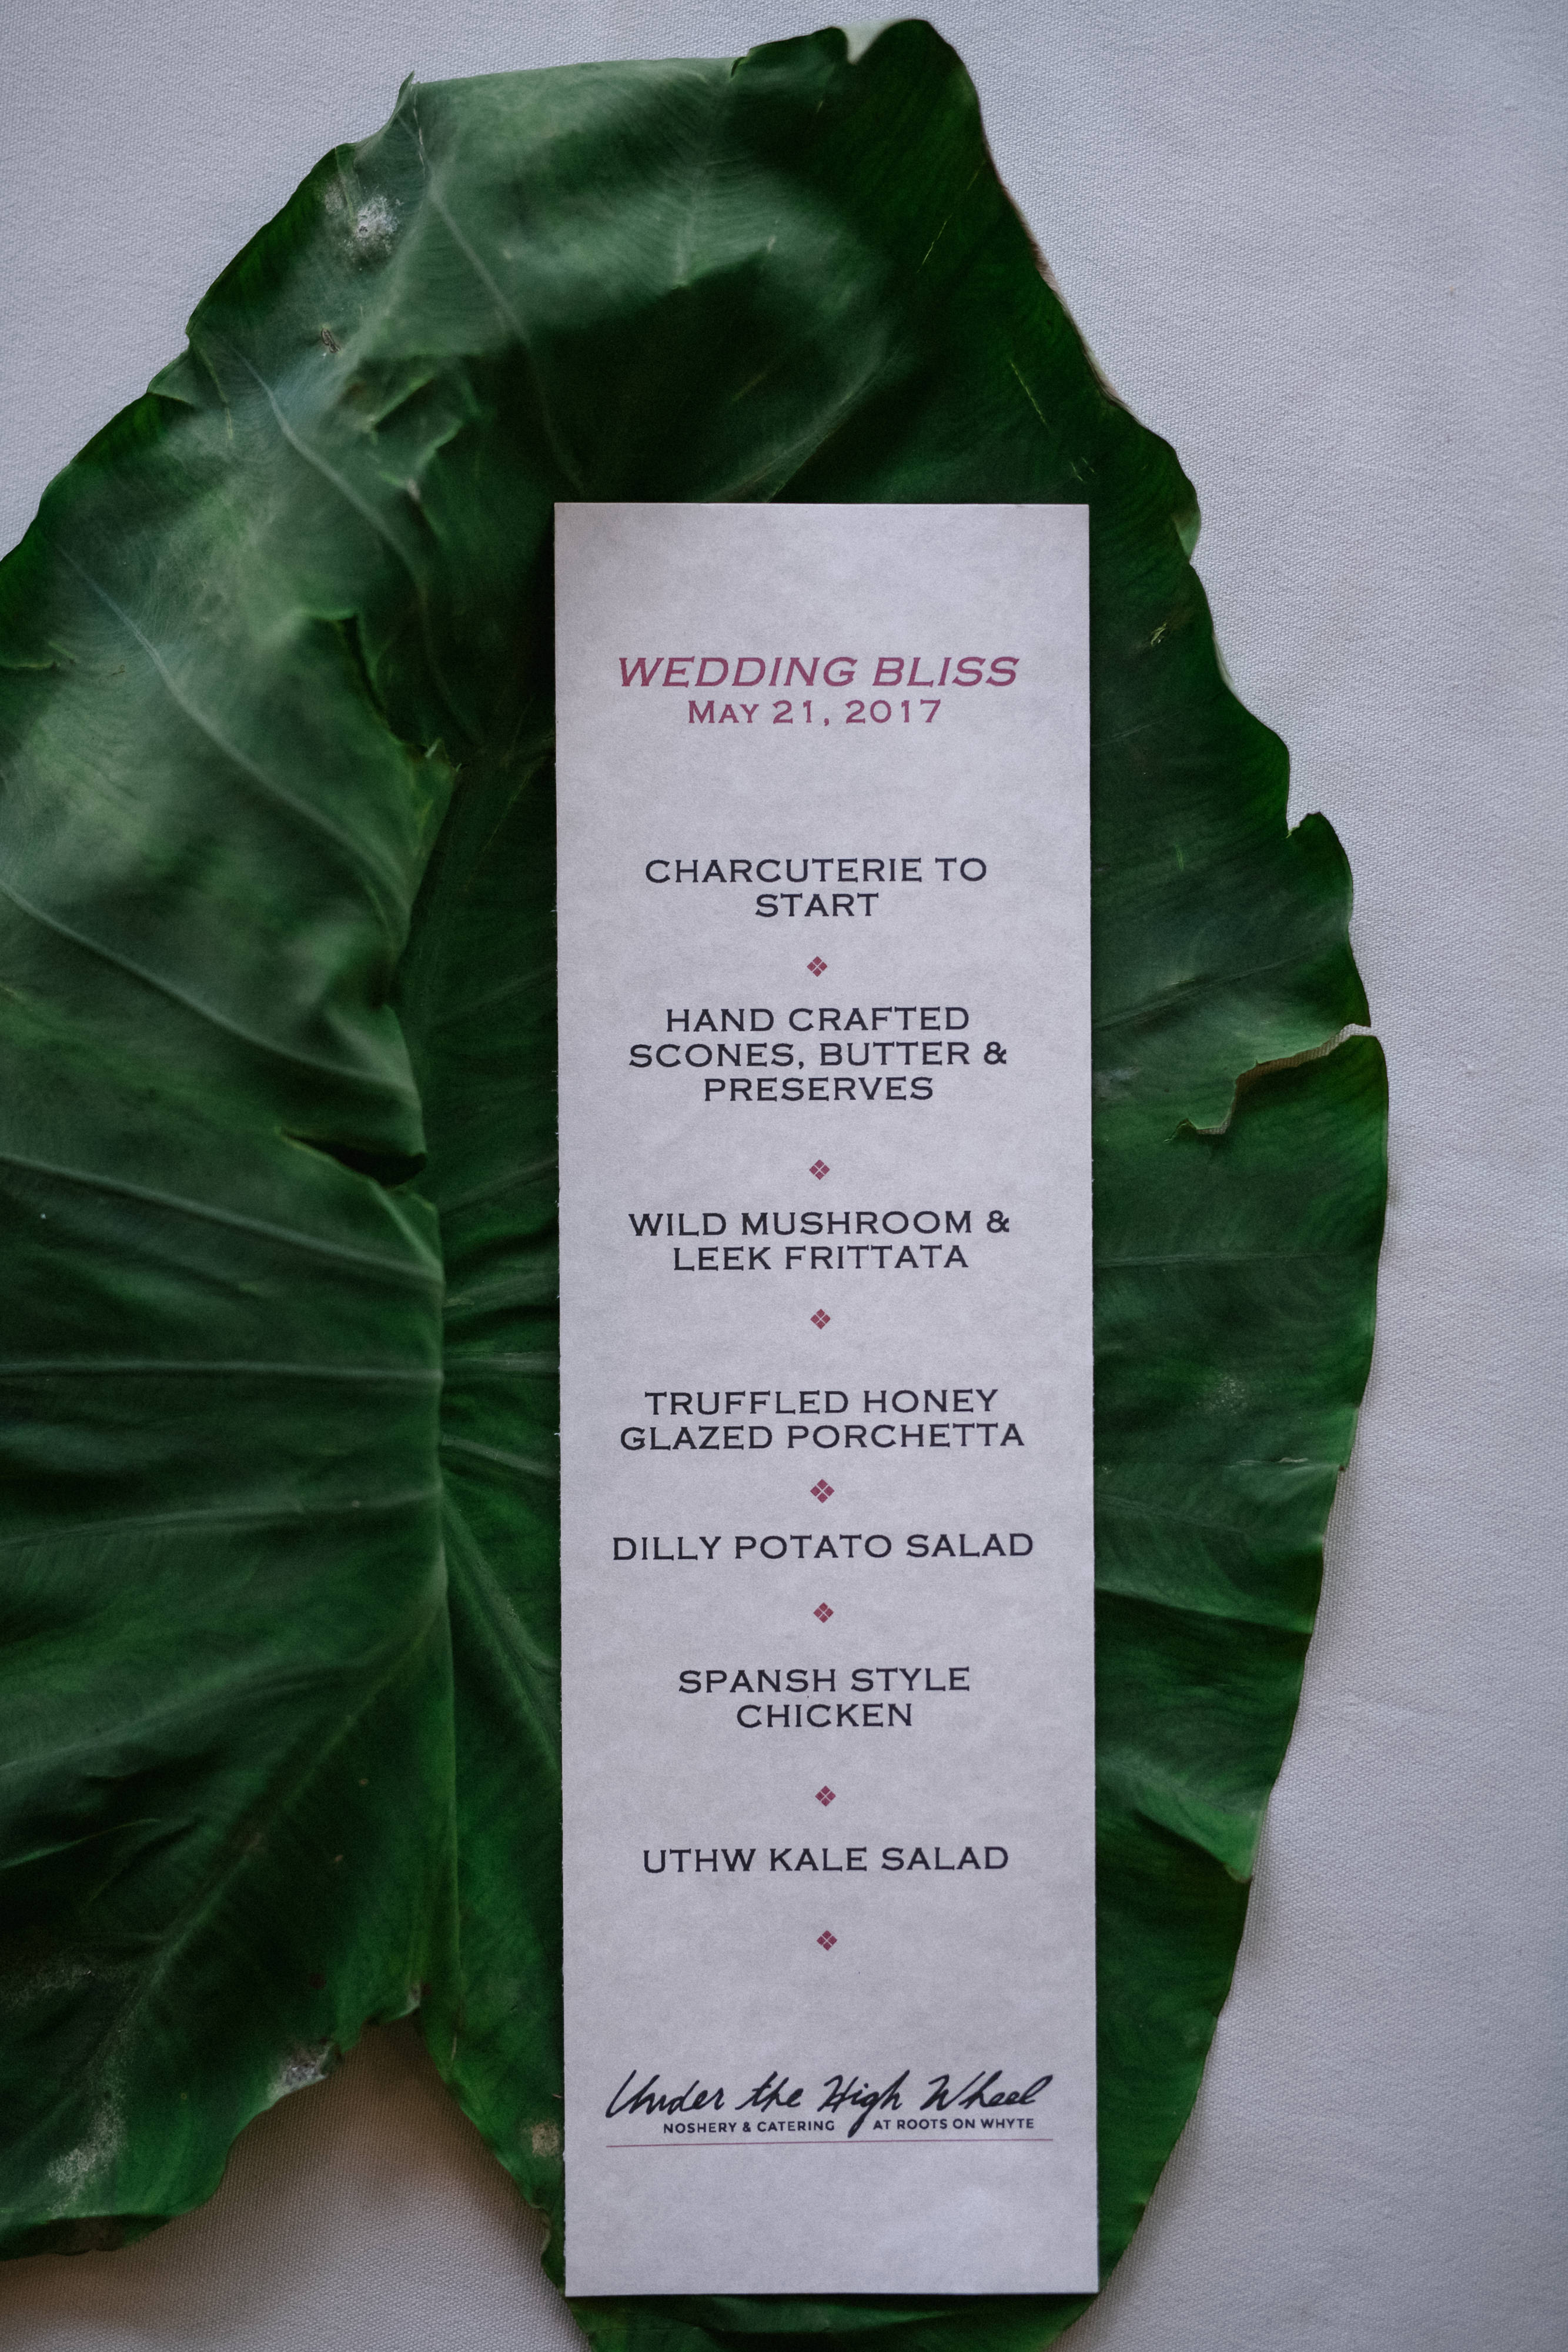 WEDDING BLISS
MAY 21, 2017
CHARCUTERIE TO
START
HAND CRAFTED
SCONES, BUTTER &
PRESERVES
WILD MUSHROOM &
LEEK FRITTATA
TRUFFLED HONEY
GLAZED PORCHETTA
DILLY POTATO SALAD
SPANSH STYLE
CHICKEN
UTHW KALE SALAD
Under the High Wheel
NOSHERY & CATERING AT ROOTS ON WHYTE